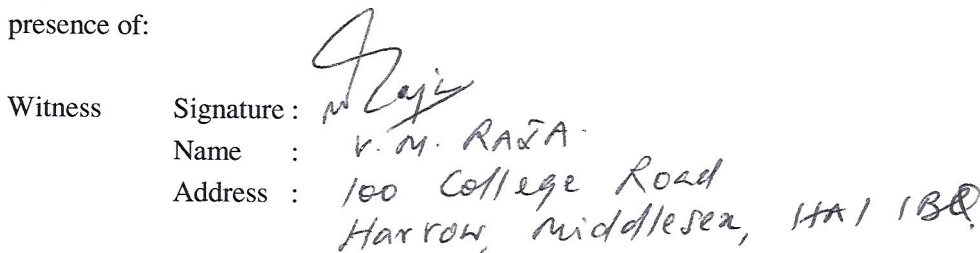 presence of:
Witness Signature :
Name : V. M. RAJA.
Address : 100 College Road
Harrow, Middlesex, HA1 1BQ.